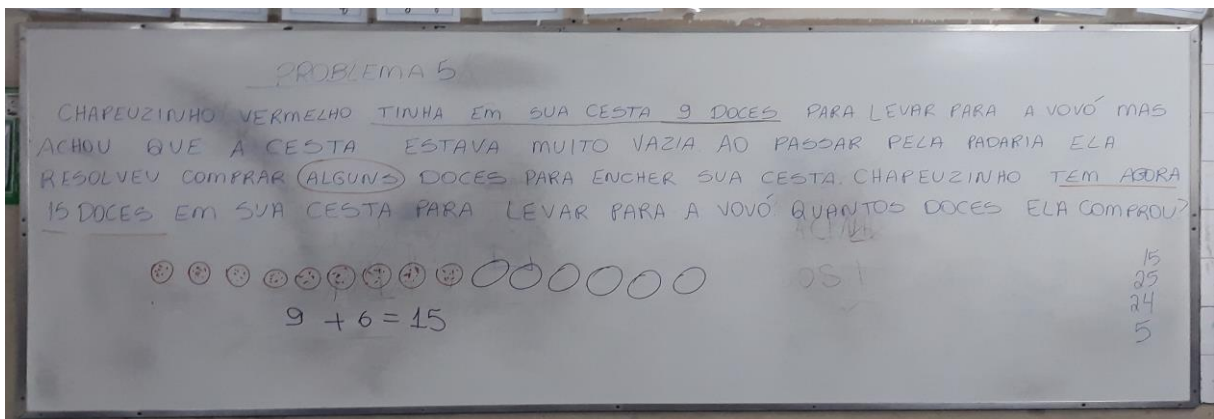 PROBLEMA 5
CHAPEUZINHO VERMELHO TINHA EM SUA CESTA 9 DOCES PARA LEVAR PARA A VOVÓ MAS
ACHOU QUE A CESTA ESTAVA MUITO VAZIA AO PASSAR PELA PADARIA ELA
RESOLVEU COMPRAR ALGUNS DOCES PARA ENCHER SUA CESTA. CHAPEUZINHO TEM AGORA
15 DOCES EM SUA CESTA PARA LEVAR PARA A VOVÓ QUANTOS DOCES ELA COMPROU?
9 + 6 = 15
15
25
24
5